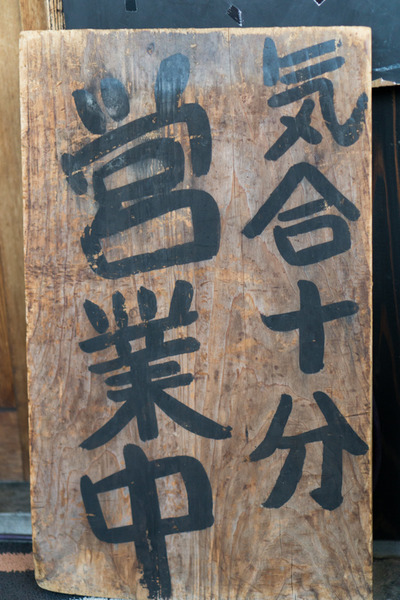 気合十分
営業中